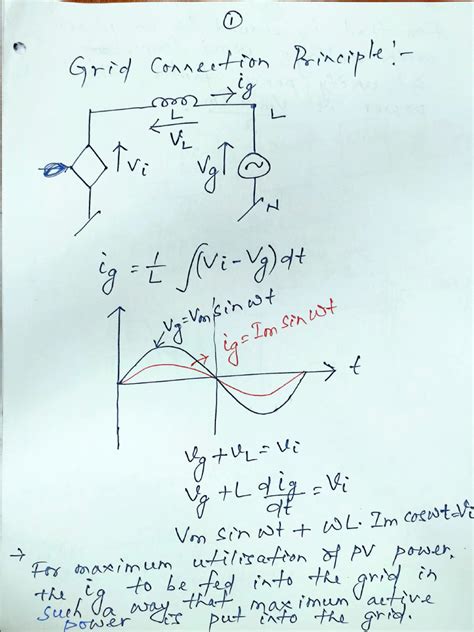 ①
Grid Connection Principle:-
ig
L
L
VL
Vi
Vg
N
ig = 1/L ∫(Vi-Vg)dt
Vg=Vm sin wt
ig = Im sin wt
t
Vg + VL = Vi
Vg + L dig/dt = Vi
Vm sin wt + WL. Im coswt=Vi
→ For maximum utilisation of PV power,
the ig to be fed into the grid in
such a way that maximum active
power is put into the grid.